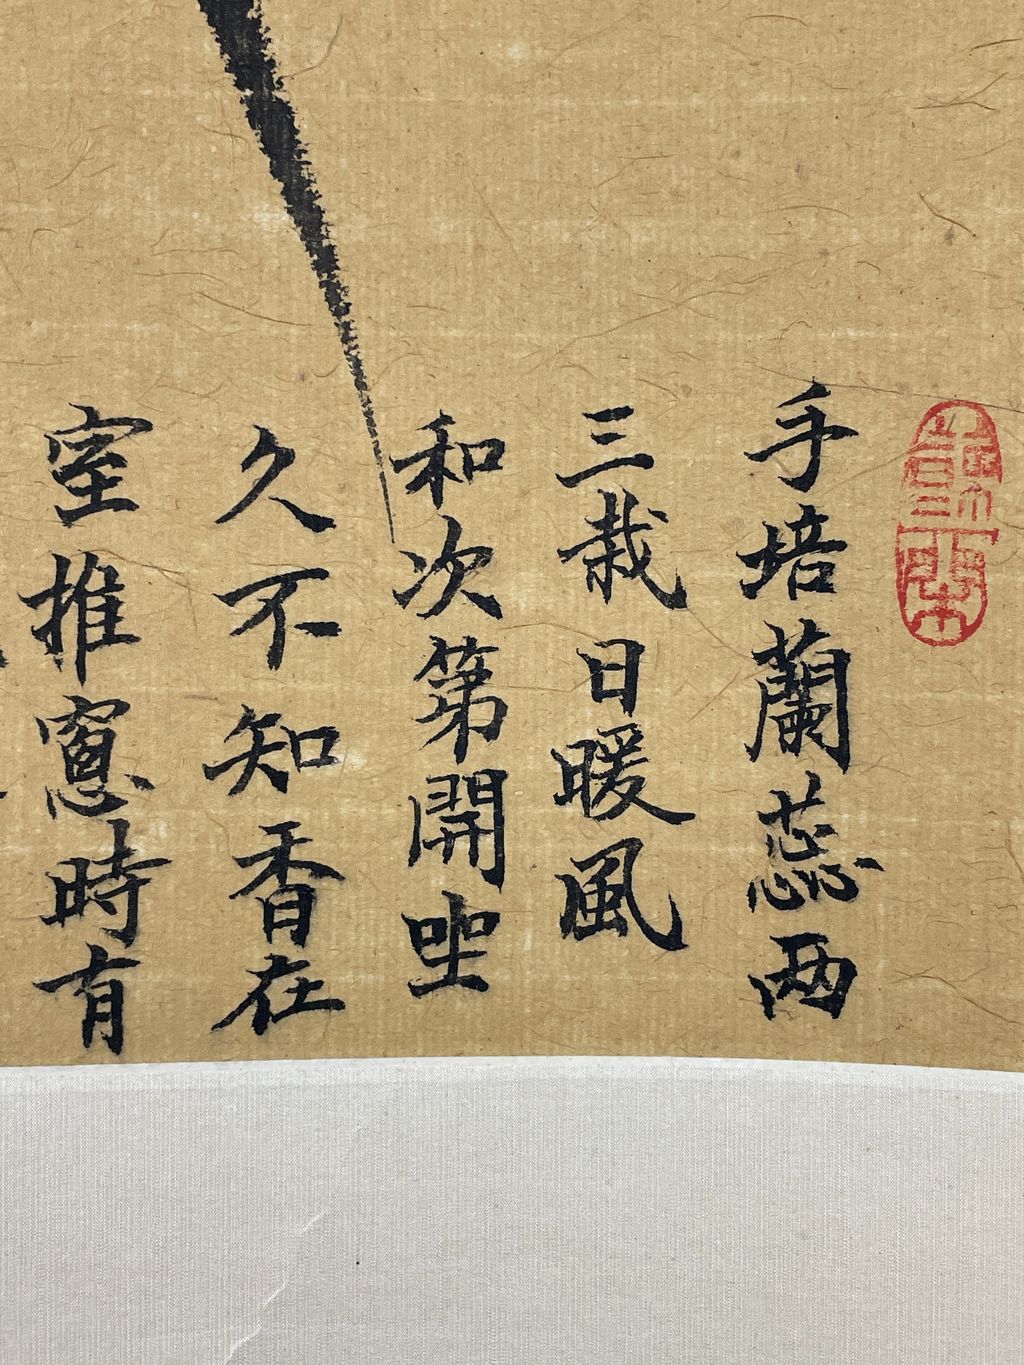 手培蘭蕊两
三栽日暖風
和次第開坐
久不知香在
室推窻時有